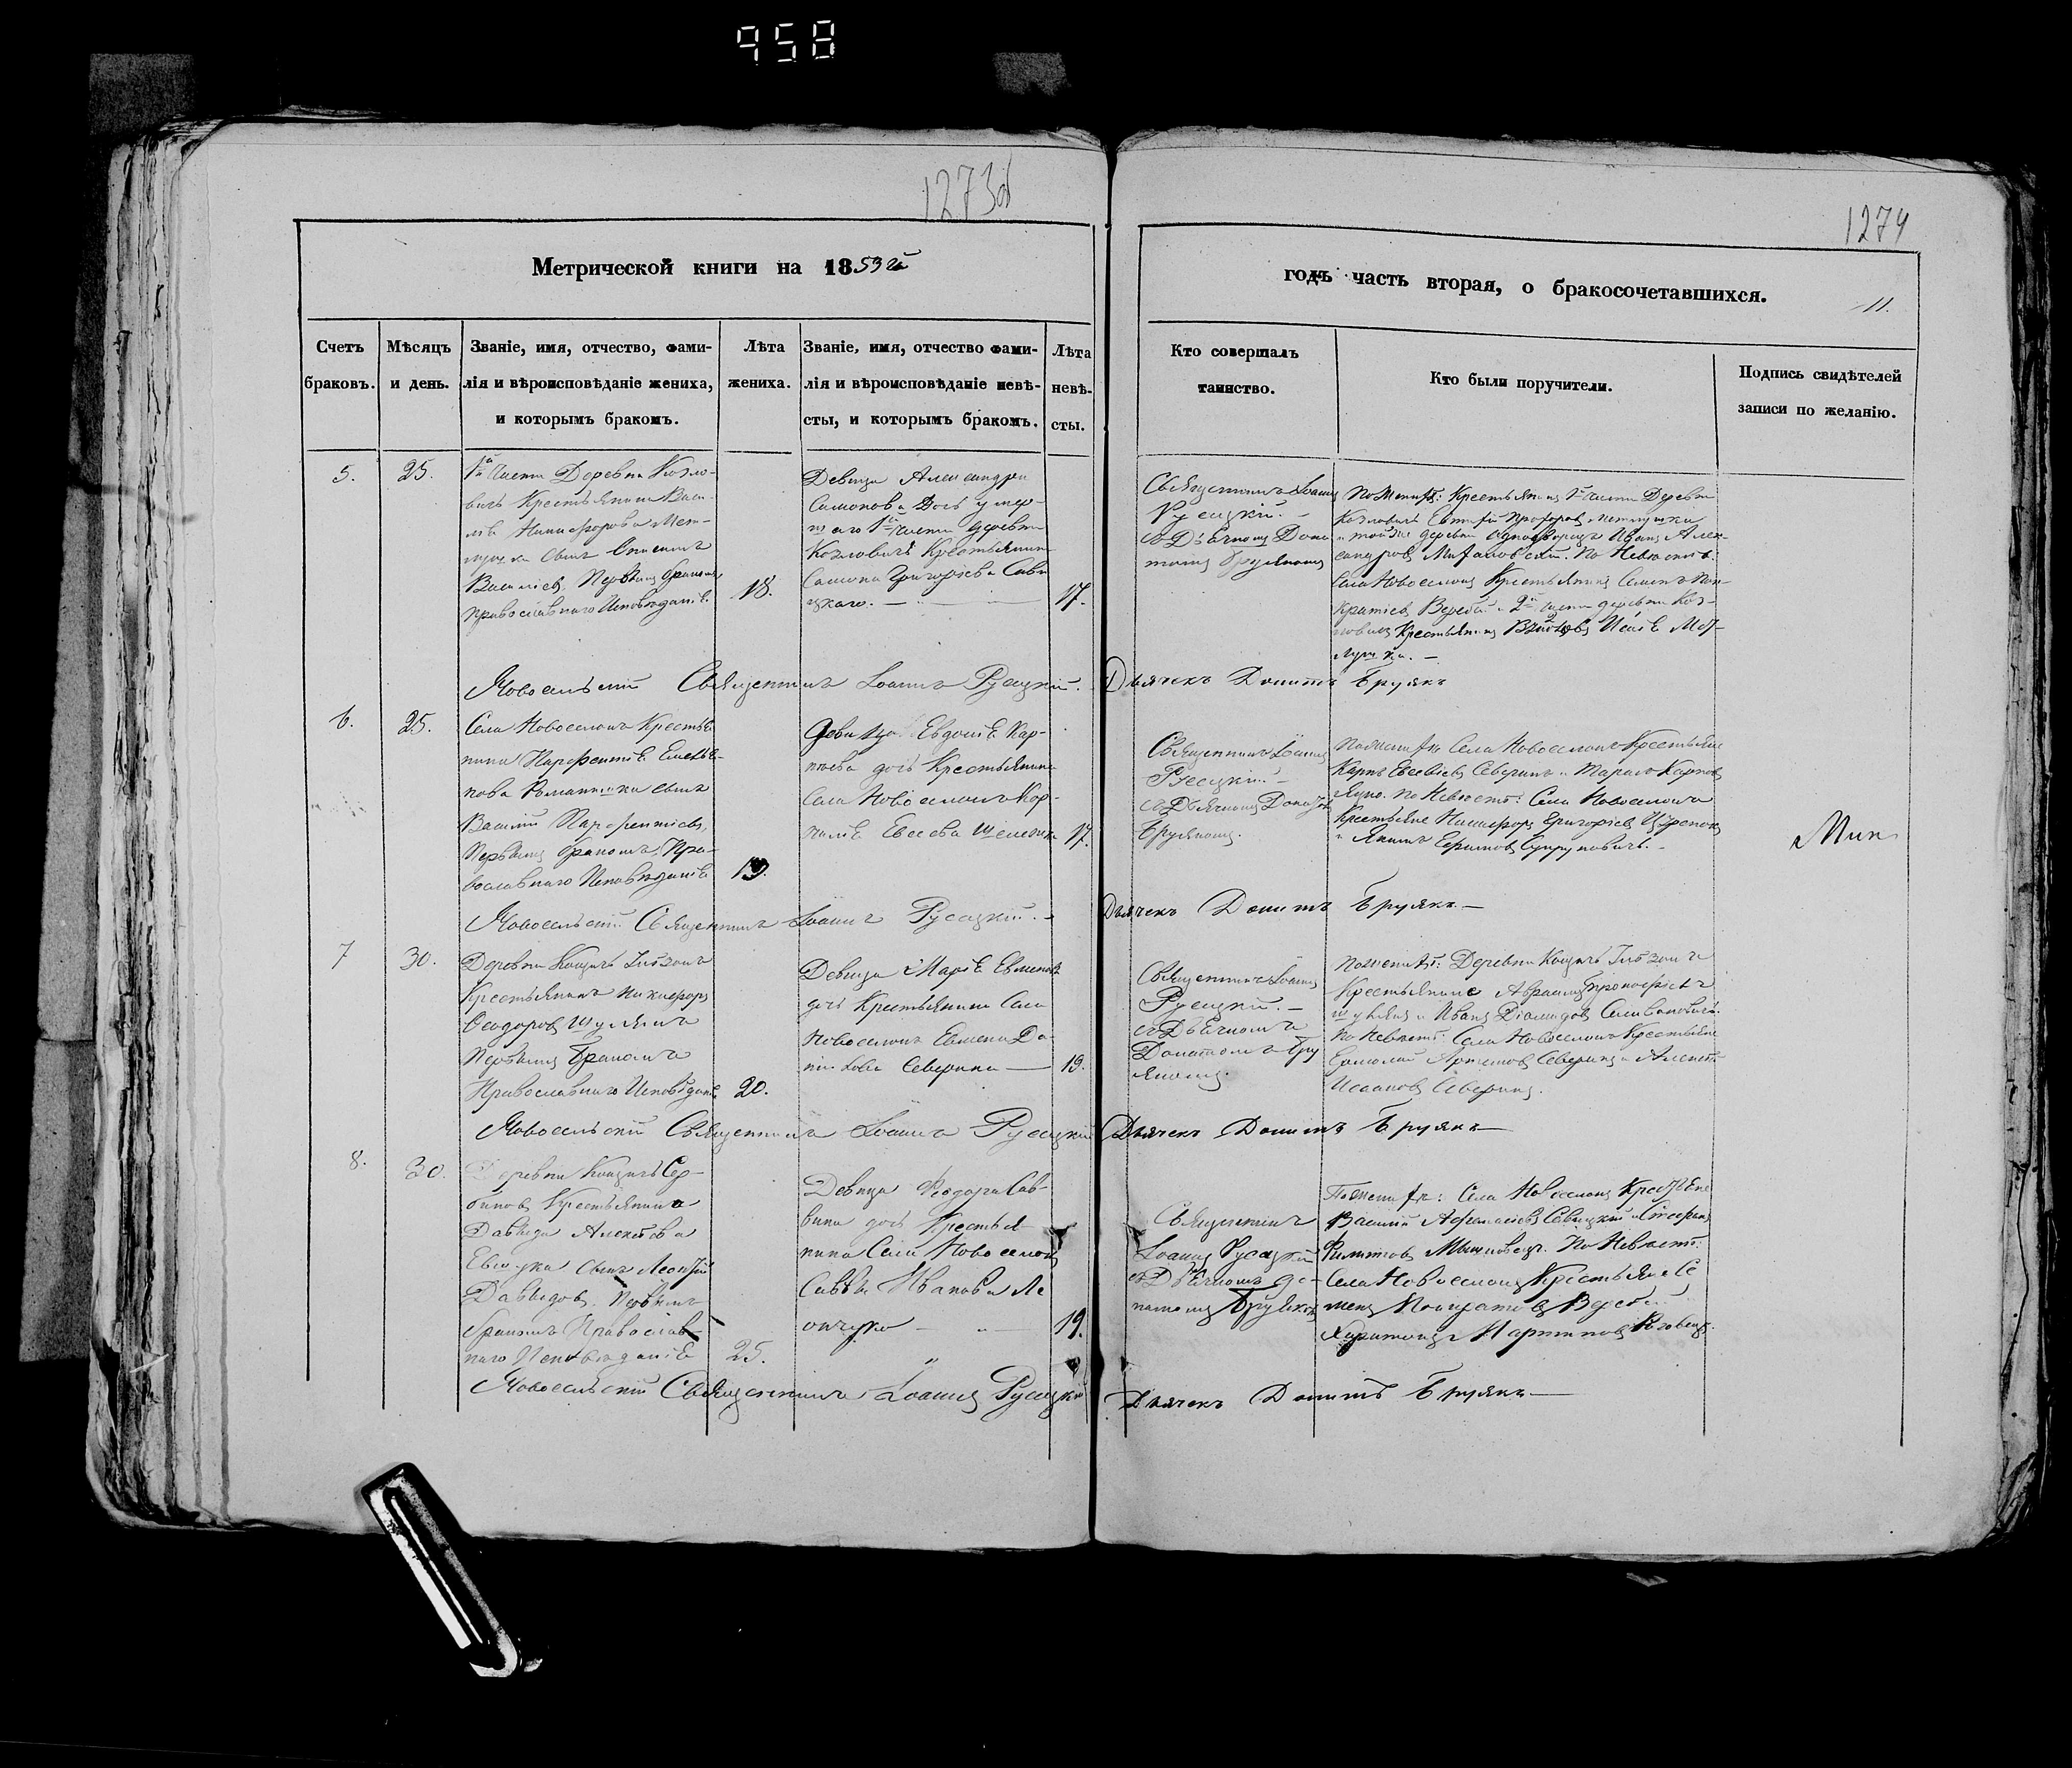 958
1273об
1274
Метрической книги на 1859 й
годъ часть вторая, о бракосочетавшихся.
11.
Счетъ
браковъ.
Мѣсяцъ
и день.
Званіе, имя, отчество, фами-
лія и вѣроисповѣданіе жениха,
и которымъ бракомъ.
Лѣта
жениха.
Званіе, имя, отчество фами-
лія и вѣроисповѣданіе невѣ-
сты, и которымъ бракомъ.
Лѣта
невѣ-
сты.
Кто совершалъ
таинство.
Кто были поручители.
Подпись свидѣтелей
записи по желанію.
5.
25.
1й части Деревни Козло-
вичъ Крестьянина Васи-
лія Никифорова Мет-
сынъ
Васильевъ, Первымъ бракомъ,
Православнаго Исповѣданія.
18.
Девица Александра
Самонова дочь умер-
шаго 1й части деревни
Козловичъ Крестьянина
Самона Григоріева Сави
цкаго. —
17.
Священникъ Іоаннъ
Русецкій. —
съ Дьячкомъ Дона
томъ Брулякомъ
По Женихѣ: Крестьянинъ 1й части Деревни
Козловичъ Прохоровъ
и той же деревни Однодворецъ Иванъ Алек-
сандровъ По Невѣстѣ:
Села Новоселокъ Крестьянинъ Семенъ Пан-
кратіевъ Веребей и 2й части деревни Коз-
ловичъ Крестьянинъ
Новосельскій Священникъ Іоаннъ Русецкій.
Дьячекъ Донатъ Брулкъ
6.
25.
Села Новоселокъ Крестья
нина Парфентія Емелья-
нова Романчика сынъ
Василій Парфентіевъ,
Первымъ бракомъ, Пра-
вославнаго Исповѣданія
19.
Девица Евдокія Кар-
нѣева дочь Крестьянина
Села Новоселокъ Кор-
нилія Евсеева
17.
Священникъ Іоаннъ
Русецкій —
съ Дьячкомъ Донатомъ
Брулякомъ.
По женихѣ Села Новоселокъ Крестьяне
Карпъ Евсевіевъ Северинъ и Тарасъ Карповъ
По Невѣстѣ: Села Новоселокъ
Крестьяне Никифоръ Григоріевъ
и Якимъ
Мик
Новосельскій Священникъ Іоаннъ Русецкій. —
Дьячекъ Донатъ Брулкъ —
7
30.
Деревни Кощичъ
Крестьянинъ Никифоръ
Ѳеодоровъ Шулякъ
Первымъ Бракомъ
Православнаго Исповѣданія
20.
Девица Марія Евменова
дочь Крестьянина Села
Новоселокъ Евмена Да-
нилова Северина —
19.
Священникъ Іоаннъ
Русецкій. —
съ Дьячкомъ
Донатомъ Бру
лякомъ.
По женихѣ: Деревни Кощичъ
Крестьяне Авраамъ
Шулякъ и Иванъ Діомидовъ Селивановичъ.
По Невѣстѣ: Села Новоселокъ Крестьяне
Ермолай Артемовъ Северинъ и Алексѣй
Исааковъ Северинъ.
Новосельскій Священникъ Іоаннъ Русецкій
Дьячекъ Донатъ Брулкъ —
8.
30.
Деревни Кощичъ Сер-
Крестьянина
Давыда Алексѣева
сынъ Леонтій
Давыдовъ. Первымъ
бракомъ Православ-
наго Исповѣданія
25.
Девица Ѳеодора Сав-
вина дочь Крестья
нина Села Новоселокъ
Саввы Иванова Ле
ончука —
19.
Священникъ
Іоаннъ Русецкій
съ Дьячкомъ До-
натомъ Брулякомъ
По женихѣ: Села Новоселокъ Крестьяне
Василій Афанасіевъ Савицкій и Стефанъ
По Невѣстѣ:
Села Новоселокъ Крестьяне Се
менъ Панкратовъ Веребей
Харитонъ Мартиновъ
Новосельскій Священникъ Іоаннъ Русецкій
Дьячекъ Донатъ Брулкъ —